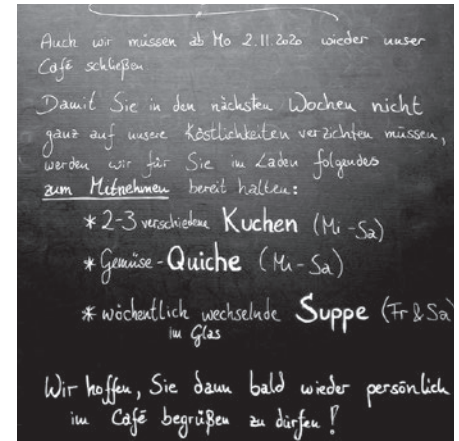 Auch wir müssen ab Mo 2.11.2020 wieder unser
Café schließen
Damit Sie in den nächsten Wochen nicht
ganz auf unsere Köstlichkeiten verzichten müssen,
werden wir für Sie im Laden folgendes
zum Mitnehmen bereit halten:
* 2-3 verschiedene Kuchen (Mi-Sa)
* Gemüse-Quiche (Mi-Sa)
* wöchentlich wechselnde Suppe (Fr & Sa)
im Glas
Wir hoffen, Sie dann bald wieder persönlich
im Café begrüßen zu dürfen!